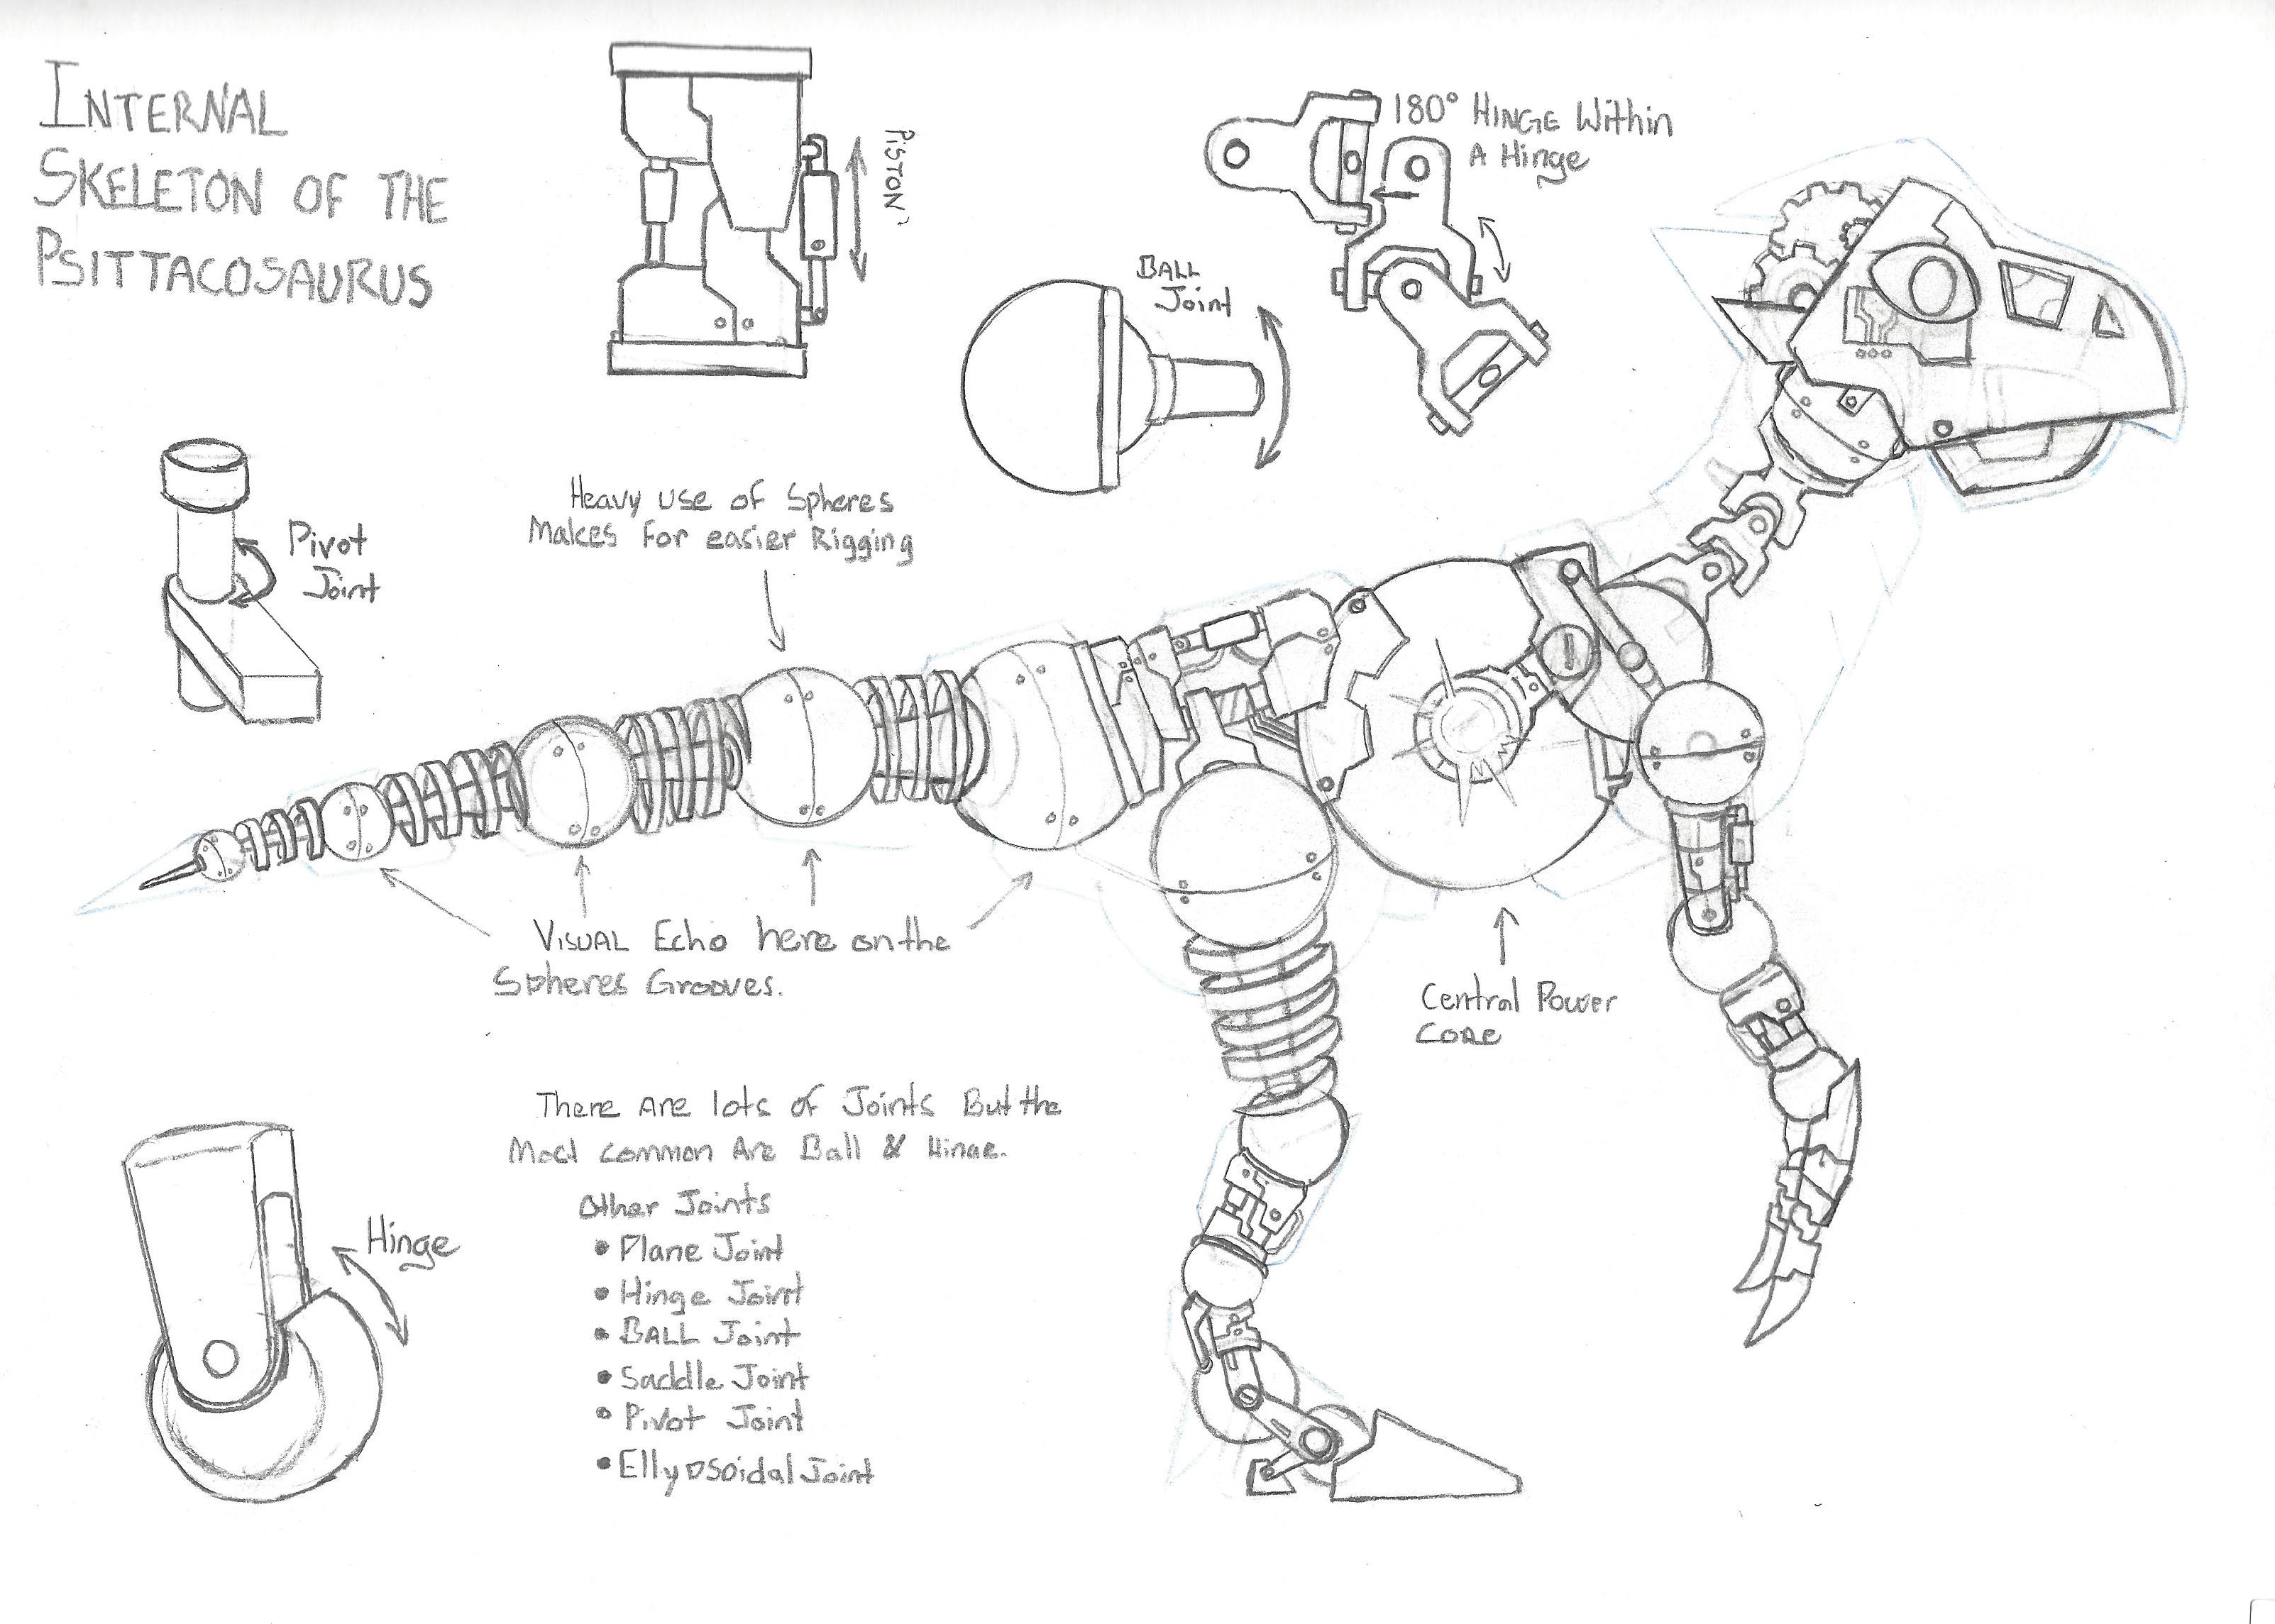 INTERNAL
SKELETON OF THE
PSITTACOSAURUS
PISTON
180° HINGE Within
A Hinge
BALL
Joint
Pivot
Joint
Heavy use of Spheres
Makes For easier Rigging
VISUAL Echo here on the
Spheres Grooves.
Central Power
CORE
There Are lots of Joints But the
Most common Are Ball & Hinge.
Hinge
Other Joints
• Plane Joint
• Hinge Joint
• BALL Joint
• Saddle Joint
• Pivot Joint
• Ellypsoidal Joint